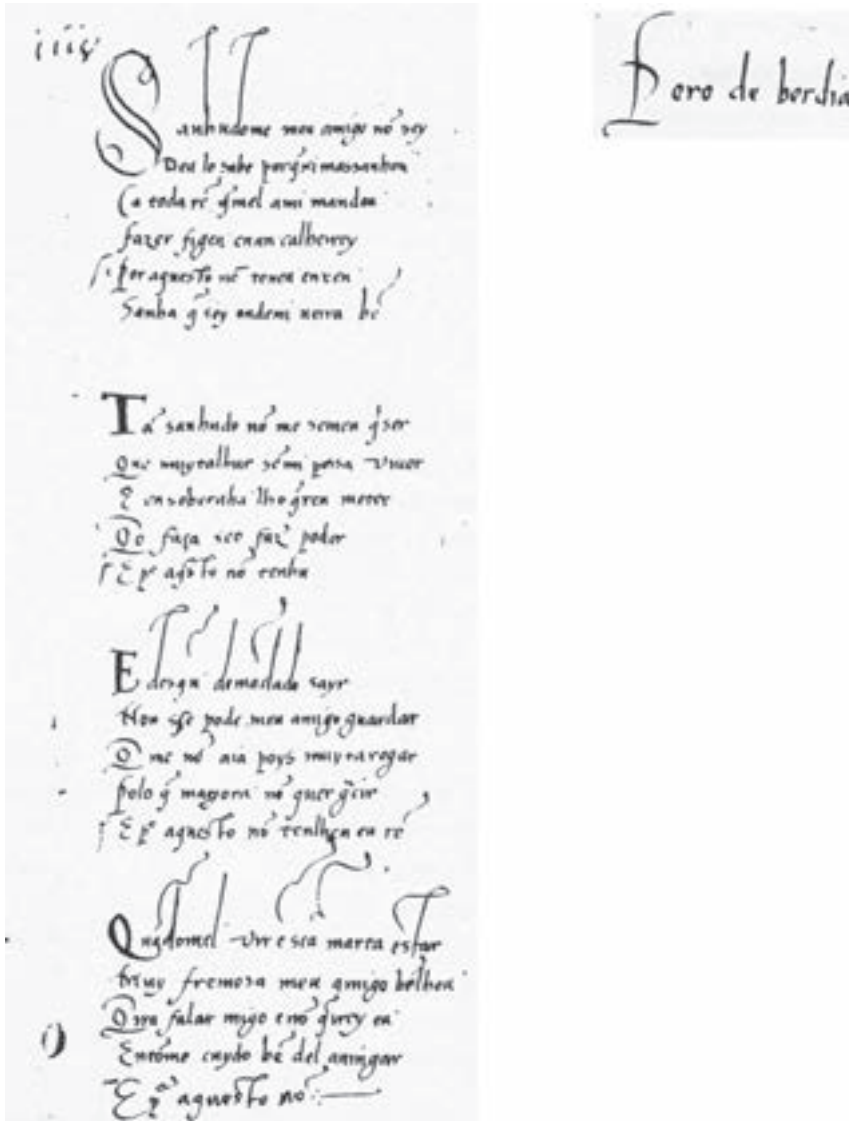 Sanhudome meu amigo nō sey
Deu lo sabe porq̄xi massanhou
Ca toda rē q̄mel ami mandou
fazer figeu enan calherrey
Por aquesto nō teneu enren
Sanha q̄ sey ondemi uerra bē
Tā sanhudo nō me semeu q̄ser
Que muytalhur sēmi possa uiuer
E ensoberuha lho q̄reu meter
Qō faça seo faz̄ poder
E p̄ aq̄sto nō tenhu
E desqui demostado sayr
Non sse pode meu amigo guardar
me nō aia poys muyrarogar
polo q̄ magora nō quer q̄cir
E p̄ aquesto nō tenlheu eu rē
Quādomel uir e scā marta estar
muy fremosa meu amigo bēlheu
Qrra falar migo e nō q̄rrey eu
Entōme cuydo bē del uingar
E p̄ aquesto nō
Pero de berdia